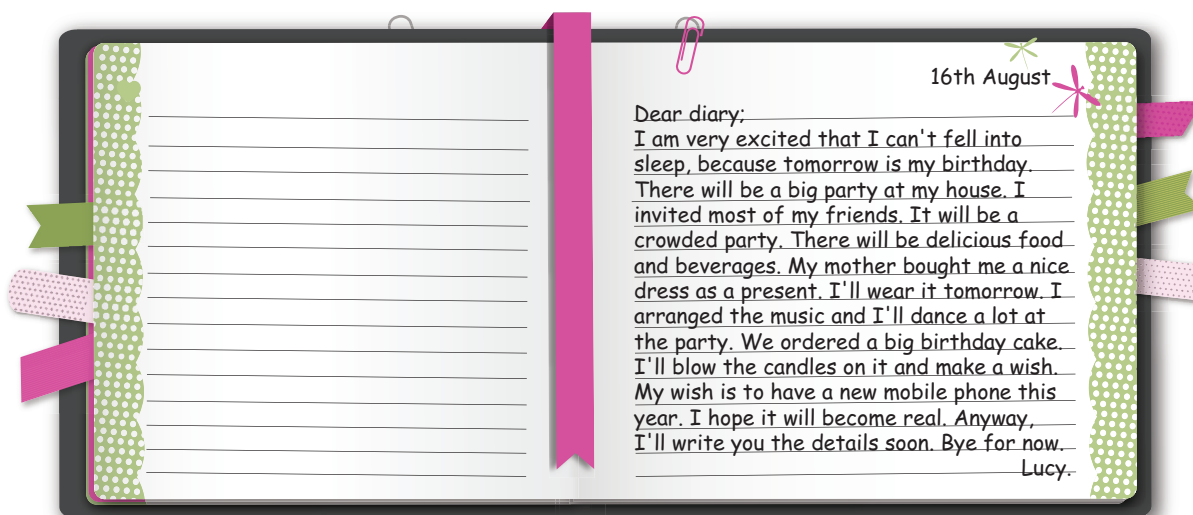 16th August
Dear diary;
I am very excited that I can't fell into
sleep, because tomorrow is my birthday.
There will be a big party at my house. I
invited most of my friends. It will be a
crowded party. There will be delicious food
and beverages. My mother bought me a nice
dress as a present. I'll wear it tomorrow. I
arranged the music and I'll dance a lot at
the party. We ordered a big birthday cake.
I'll blow the candles on it and make a wish.
My wish is to have a new mobile phone this
year. I hope it will become real. Anyway,
I'll write you the details soon. Bye for now.
Lucy.